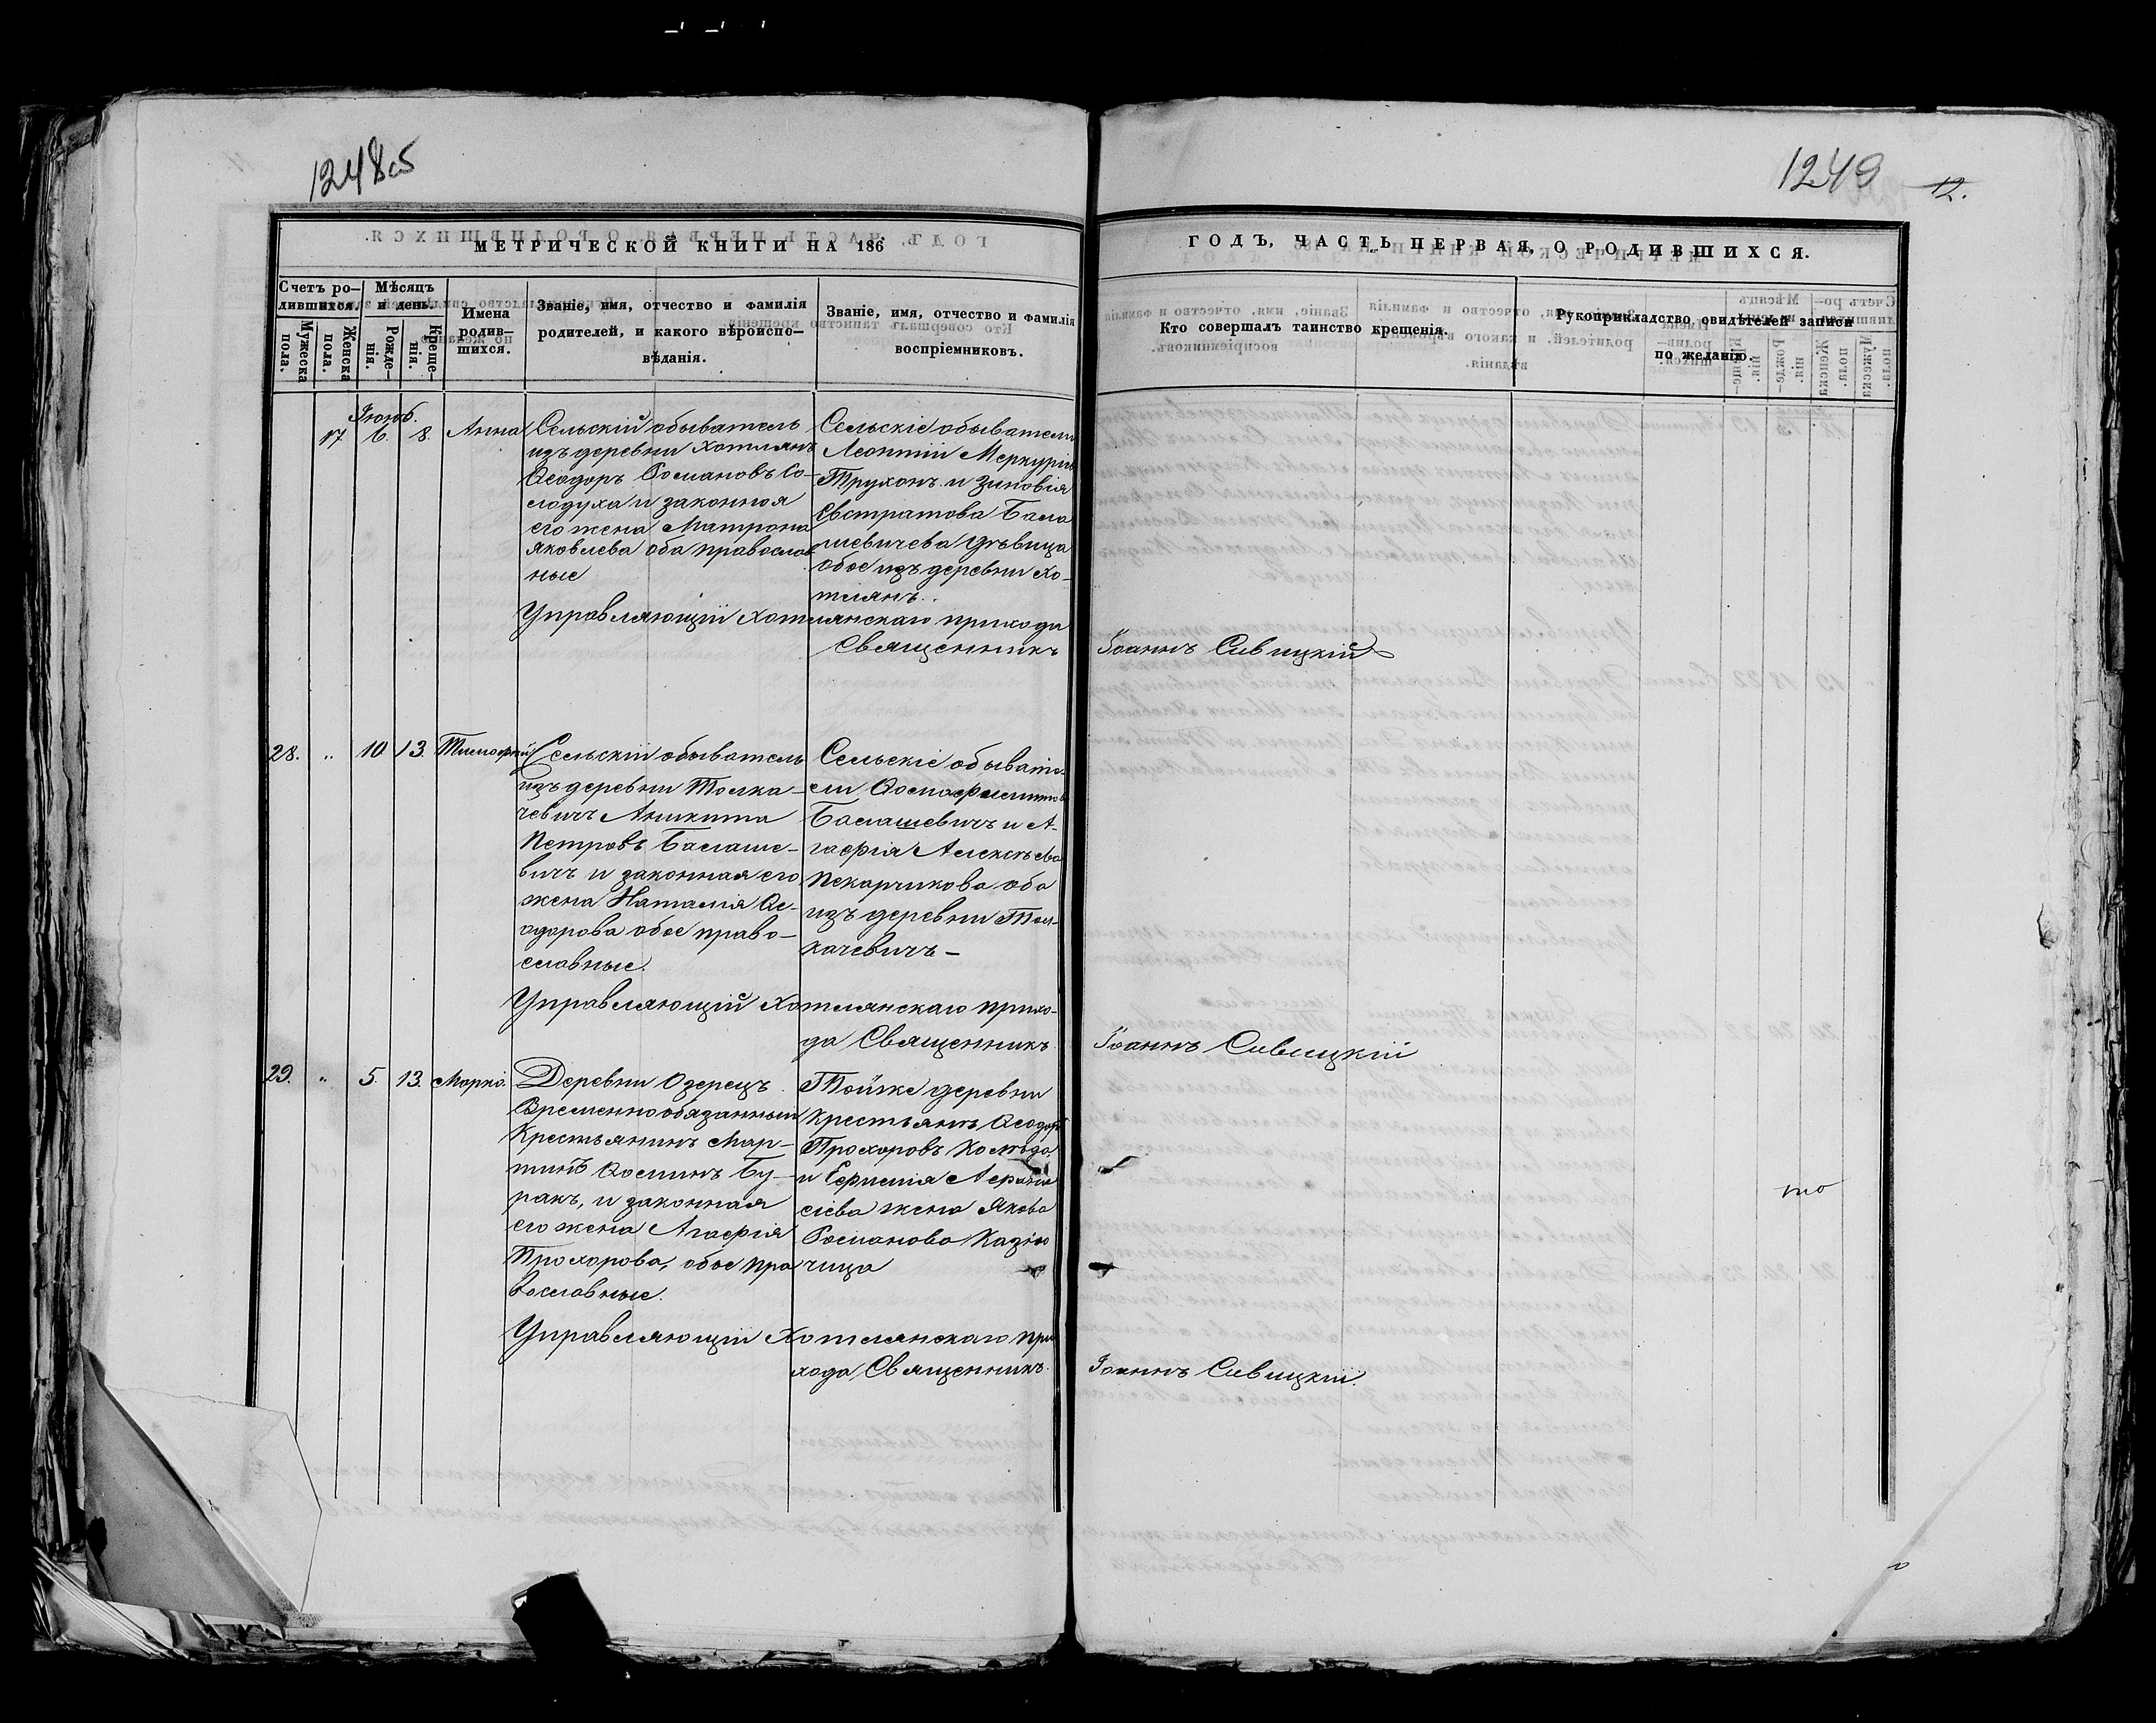 1248об
1249
12.
МЕТРИЧЕСКОЙ КНИГИ НА 186
ГОДЪ, ЧАСТЬ ПЕРВАЯ, О РОДИВШИХСЯ.
Счетъ ро-
дившихся.
Мужеска
пола.
Женска
пола.
Мѣсяцъ
и день.
Рожде-
нія.
Креще-
нія.
Имена
родив-
шихся.
Званіе, имя, отчество и фамилія
родителей, и какого вѣроиспо-
вѣданія.
Званіе, имя, отчество и фамилія
воспріемниковъ.
Кто совершалъ таинство крещенія.
Рукоприкладство свидѣтелей записи
по желанію.
Іюнь.
17 6. 8. Анна
Сельскій обыватель
изъ деревни Хотлянъ
Ѳеодоръ Романовъ Со-
лодуха и законная
его жена Матрона
Яковлева оба православ
ные
Сельскіе обыватели
Леонтій Меркурі
Трухонъ и Зиновія
Евстратова Бала
шевичева дѣвица
обое изъ деревни Хо-
тлянъ.
Управляющій Хотлянскаго прихода
Священникъ
Іоаннъ Сивицкій
28. „ 10 13. Тимофей
Сельскій обыватель
изъ деревни Толка-
чевичъ Аникита
Петровъ Балаше-
вичъ и законная его
жена Наталія Ѳе-
одорова обое право-
славные.
Сельскіе обывате-
ли Ѳома
Балашевичъ и А-
гафія Алексѣева
Пекарчикова оба
изъ деревни Тол-
качевичъ-
Управляющій Хотлянскаго прихо-
да Священникъ
Іоаннъ Сивицкій
29. „ 5. 13. Марко.
Деревни Озерецъ
Временнообязанный
Крестьянинъ Мар-
тинъ Ѳоминъ Бу-
ракъ, и законная
его жена Агафія
Прохорова, обое пра
вославные.
Тойже деревни
Крестьянъ Ѳеодоръ
Прохоровъ
и Афана
сіева жена Якова
Романова
чица
Управляющій Хотлянскаго при
хода Священникъ.
Іоаннъ Сивицкій.